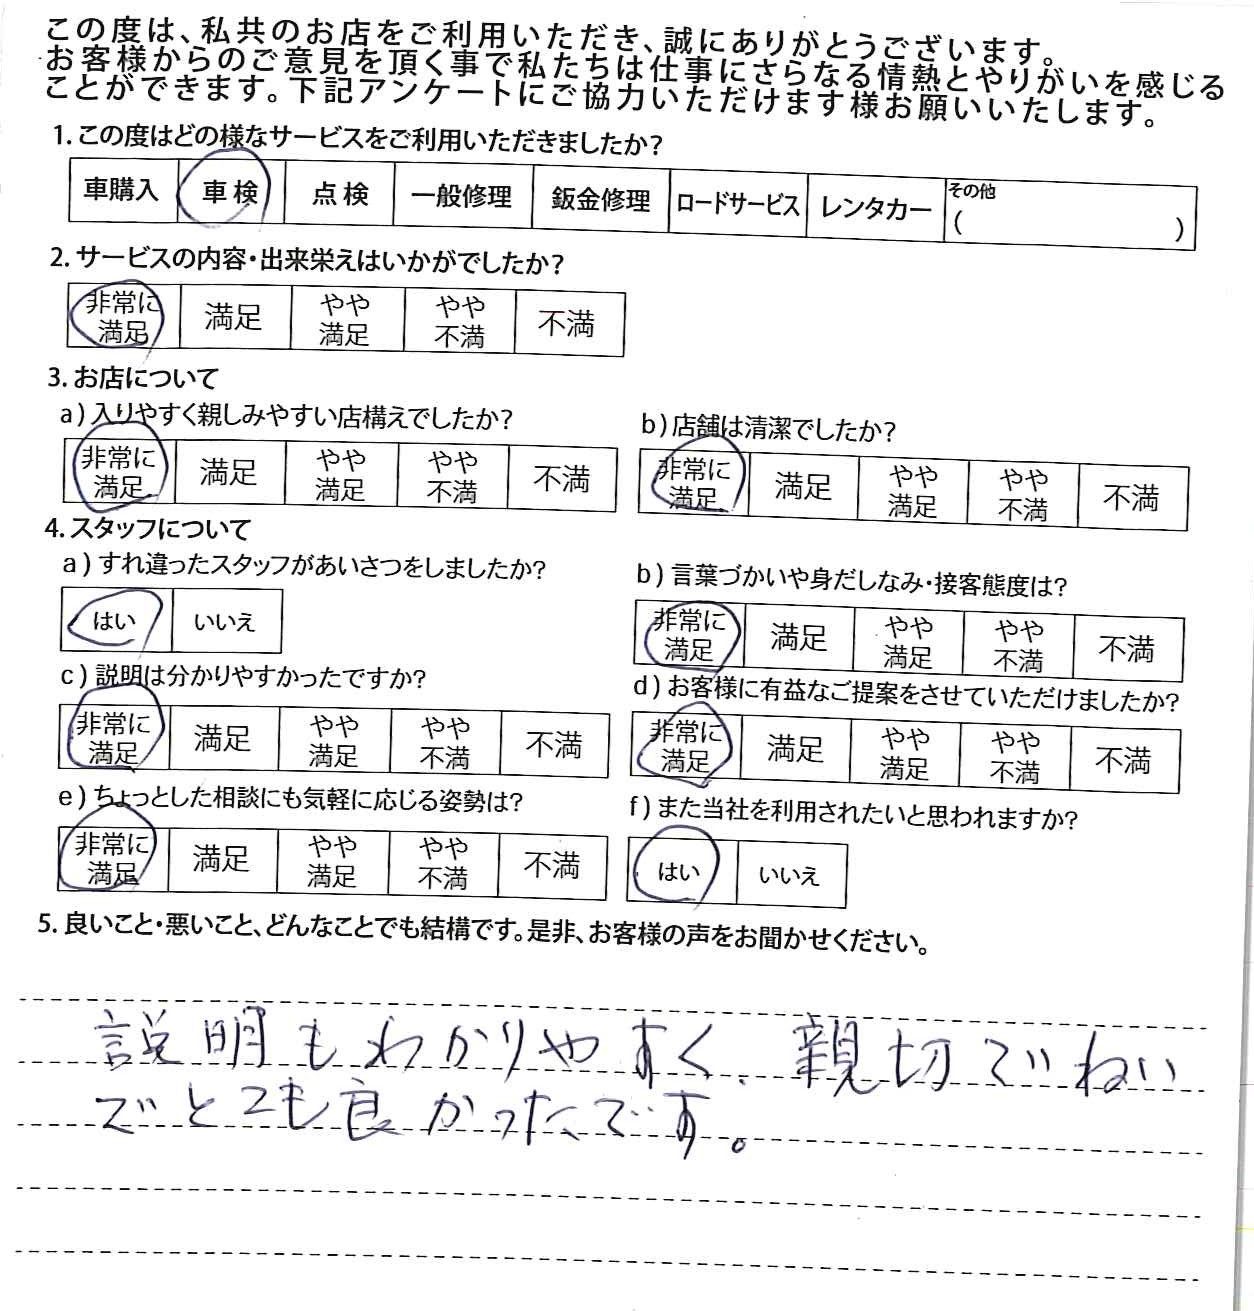 この度は、私共のお店をご利用いただき、誠にありがとうございます。
お客様からのご意見を頂く事で私たちは仕事にさらなる情熱とやりがいを感じる
ことができます。下記アンケートにご協力いただけます様お願いいたします。
1.この度はどの様なサービスをご利用いただきましたか?
車購入 車検 点検 一般修理 鈑金修理 ロードサービス レンタカー その他
( )
2.サービスの内容・出来栄えはいかがでしたか?
非常に 満足 やや やや 不満
満足 満足 不満
3.お店について
a)入りやすく親しみやすい店構えでしたか?
非常に 満足 やや やや 不満
満足 満足 不満
b)店舗は清潔でしたか?
非常に 満足 やや やや 不満
満足 満足 不満
4.スタッフについて
a)すれ違ったスタッフがあいさつをしましたか?
はい いいえ
b)言葉づかいや身だしなみ・接客態度は?
非常に 満足 やや やや 不満
満足 満足 不満
c)説明は分かりやすかったですか?
非常に 満足 やや やや 不満
満足 満足 不満
d)お客様に有益なご提案をさせていただけましたか?
非常に 満足 やや やや 不満
満足 満足 不満
e)ちょっとした相談にも気軽に応じる姿勢は?
非常に 満足 やや やや 不満
満足 満足 不満
f)また当社を利用されたいと思われますか?
はい いいえ
5.良いこと・悪いこと、どんなことでも結構です。是非、お客様の声をお聞かせください。
説明もわかりやすく、親切でねい
でとても良かったです。